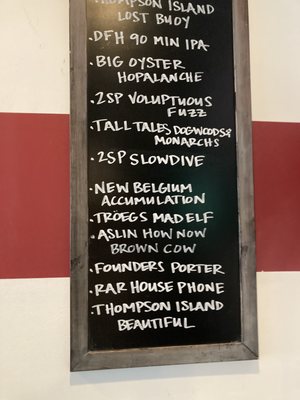 THOMPSON ISLAND
LOST BUOY
• DFH 90 MIN IPA
• BIG OYSTER
HOPALANCHE
• 2SP VOLUPTUOUS
FUZZ
• TALL TALES DOGWOODS &
MONARCHS
• 2SP SLOWDIVE
• NEW BELGIUM
ACCUMULATION
• TRÖEGS MAD ELF
• ASLIN HOW NOW
BROWN COW
• FOUNDERS PORTER
• RAR HOUSE PHONE
• THOMPSON ISLAND
BEAUTIFUL